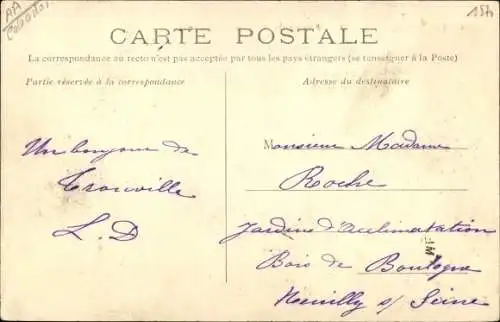 AA
Calvados
154
CARTE POSTALE
La correspondance au recto n'est pas acceptée par tous les pays étrangers (se renseigner à la Poste)
Partie réservée à la correspondance
Adresse du destinataire
Un bonjour de
Trouville
L. D
Monsieur Madame
Roche
Jardins d'acclimatation
Bois de Boulogne
Neuilly s/ Seine